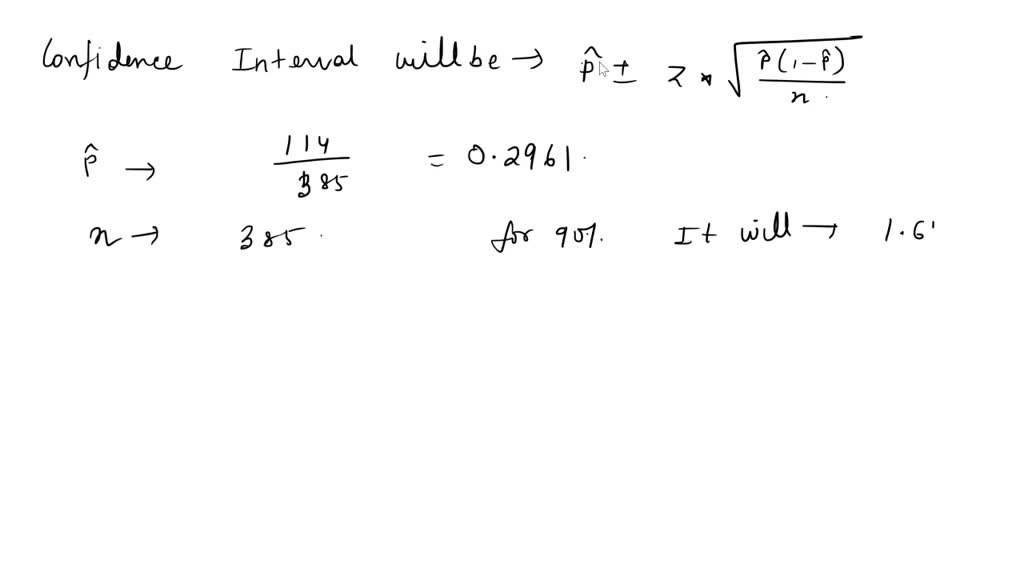 Confidence Interval will be → p̂ ± z * √(p̂(1-p̂)/n)
p̂ → 114/385 = 0.2961.
n → 385. for 90%. It will → 1.6